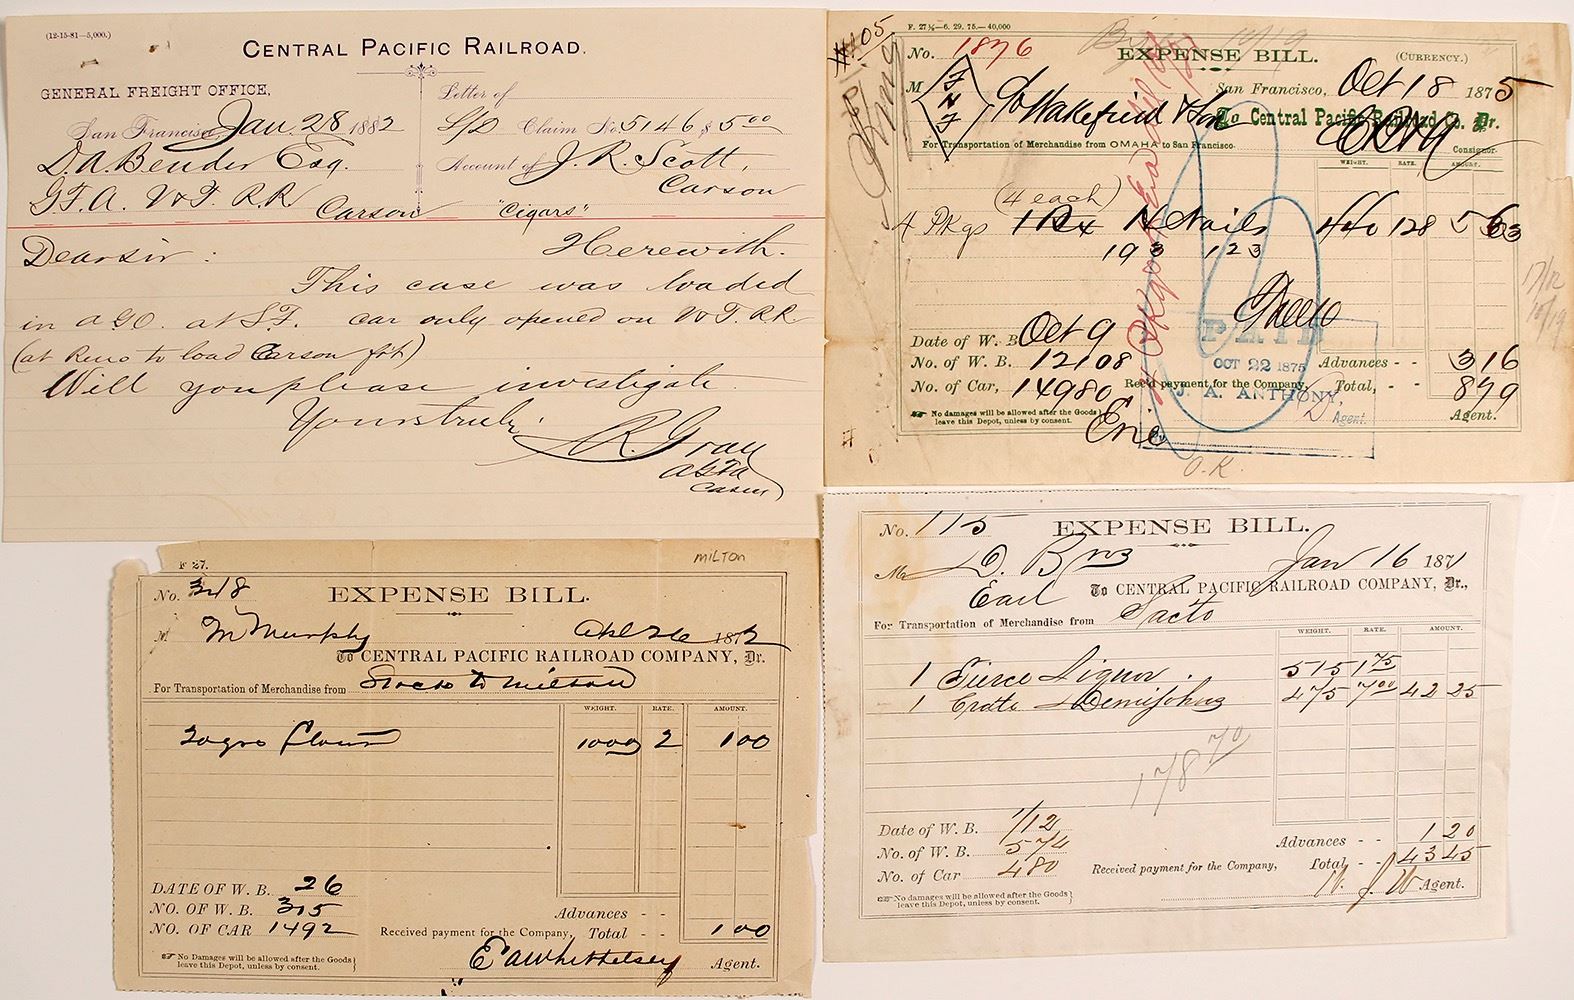 (12-15-81—5,000.)
CENTRAL PACIFIC RAILROAD.
GENERAL FREIGHT OFFICE,
San Francisco Jan. 28 1882
D. A. Bender Esq.
G.F.A. V&T. R.R. Carson
Letter of
L/D Claim No. 5146 $ 5 00
Account of J. R. Scott,
Carson
"Cigars"
Dear sir: Herewith.
This case was loaded
in a GO. at S.F. car only opened on V&T. R.R.
(at Reno to load Carson frt)
Will you please investigate.
Yours truly,
R. Gray
F. 27½—6. 29. 75.—40,000
No. 1876 EXPENSE BILL. (CURRENCY.)
San Francisco, Oct 18 1875
M Wakefield & Son To Central Pacific Railroad Co. Dr.
For Transportation of Merchandise from OMAHA to San Francisco. Consignor.
WEIGHT. RATE. AMOUNT.
(4 each)
4 Pkgs 1 Bx H Nails 440 128 5 63
193 123
Date of W. B. Oct 9
No. of W. B. 12108 Advances - - 3 16
No. of Car, 14980 Rec'd payment for the Company, Total, - - 8 79
PAID
OCT 22 1875
J. A. ANTHONY,
Agent.
No damages will be allowed after the Goods
leave this Depot, unless by consent.
Agent.
O.K.
F 27. MILTON
No. 318 EXPENSE BILL.
M M Murphy Apl 26 1872
To CENTRAL PACIFIC RAILROAD COMPANY, Dr.
For Transportation of Merchandise from Stock to Milton
WEIGHT. RATE. AMOUNT.
20 qrs Flour 1000 2 1 00
DATE OF W. B. 26
NO. OF W. B. 315 Advances - -
NO. OF CAR 1492 Received payment for the Company, Total - - 1 00
No Damages will be allowed after the Goods
leave this Depot, unless by consent.
E A Whittelsey Agent.
No. 115 EXPENSE BILL.
Jan 16 1871
M D. Bros
Earl To CENTRAL PACIFIC RAILROAD COMPANY, Dr.,
For Transportation of Merchandise from Sacto
WEIGHT. RATE. AMOUNT.
1 Tierce Liquor 515 1 75
1 Crate Demijohns 475 7 00 42 25
178 70
Date of W. B. 1/12
No. of W. B. 574 Advances - - 1 20
No. of Car 480 Received payment for the Company, Total - - 43 45
No damages will be allowed after the Goods
leave this Depot, unless by consent.
Agent.